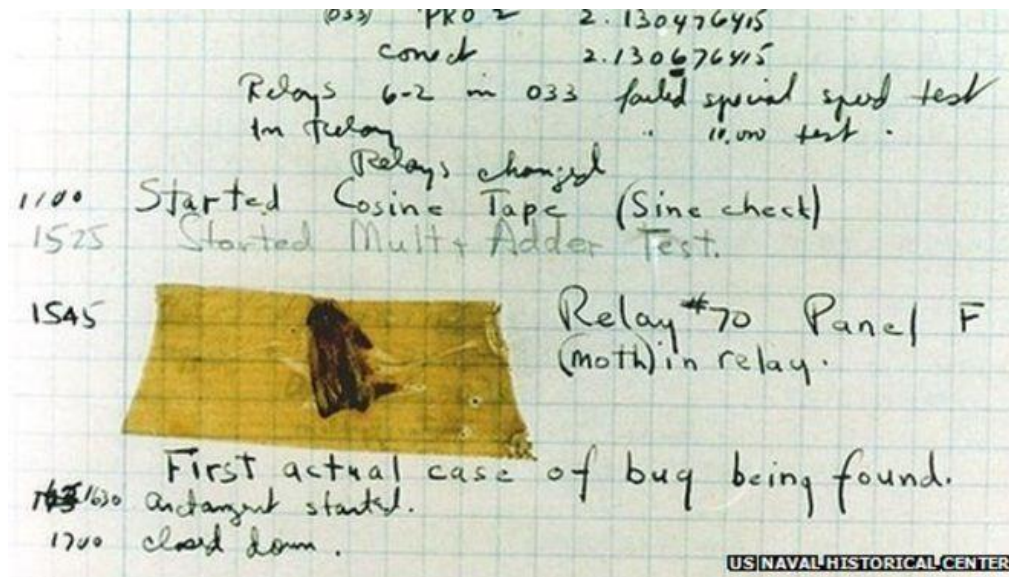 (033) PRO 2 2.130476415
conect 2.130676415
Relays 6-2 in 033 failed special speed test
In Relay " 10,000 test.
Relays changed
1100 Started Cosine Tape (Sine check)
1525 Started Mult + Adder Test.
1545 Relay #70 Panel F
(moth) in relay.
First actual case of bug being found.
1630 arctangent started.
1700 closed down.
US NAVAL HISTORICAL CENTER